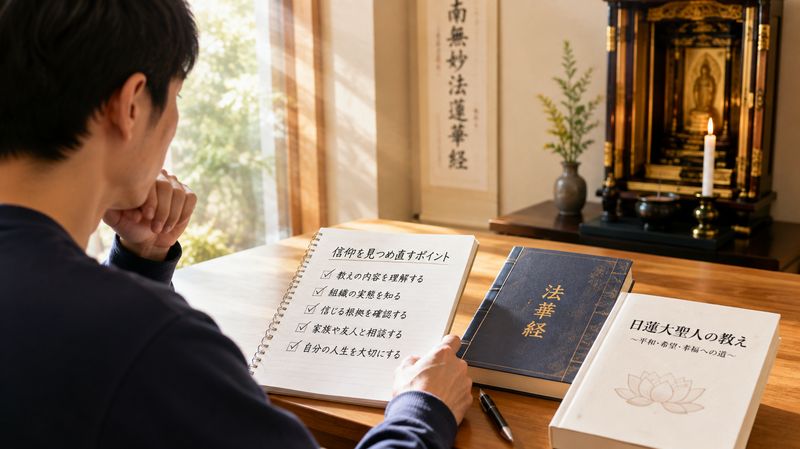 南無妙法蓮華経
信仰を見つめ直すポイント
☑ 教えの内容を理解する
☑ 組織の実態を知る
☑ 信じる根拠を確認する
☑ 家族や友人と相談する
☑ 自分の人生を大切にする
法華経
日蓮大聖人の教え
～平和・希望・幸福への道～